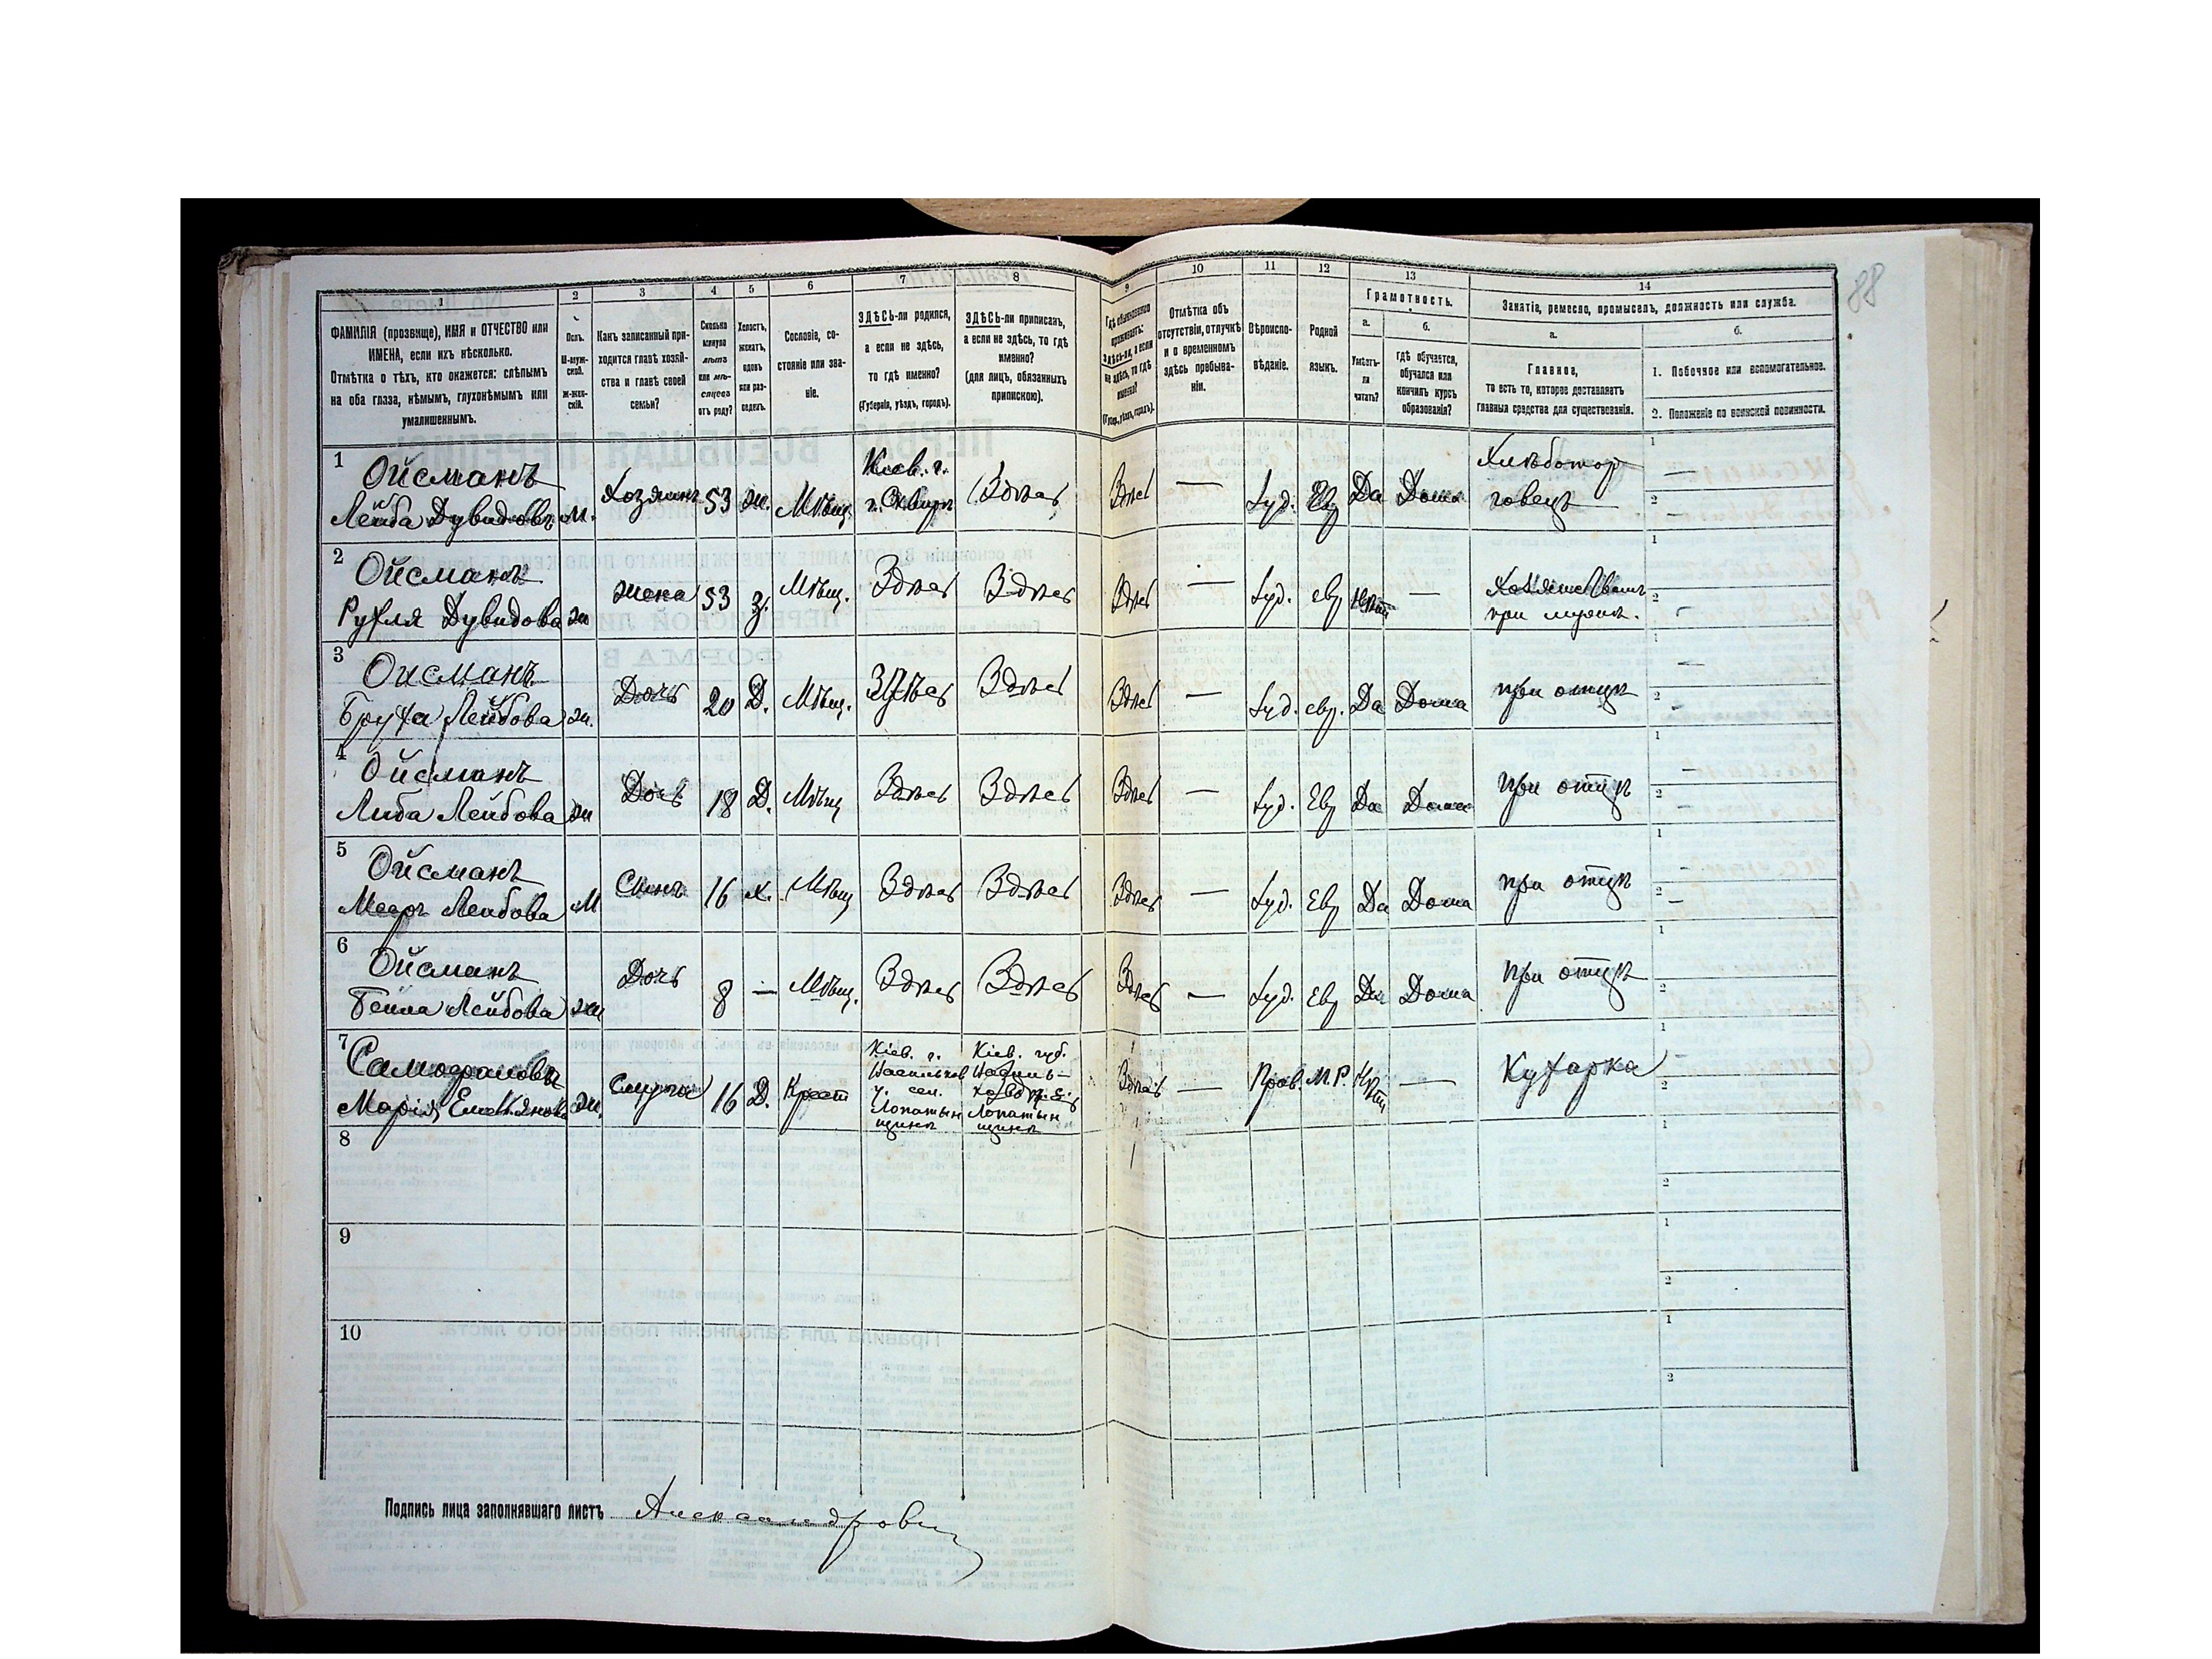 88
1
2
3
4
5
6
7
8
9
10
11
12
13
14
ФАМИЛІЯ (прозвище), ИМЯ и ОТЧЕСТВО или
ИМЕНА, если ихъ нѣсколько.
Отмѣтка о тѣхъ, кто окажется: слѣпымъ
на оба глаза, нѣмымъ, глухонѣмымъ или
умалишеннымъ.
Полъ.
М-муж-
ской.
Ж-жен-
скій.
Какъ записанный при-
ходится главѣ хозяй-
ства и главѣ своей
семьи?
Сколько
минуло
лѣтъ
или мѣ-
сяцевъ
отъ роду?
Холостъ,
женатъ,
вдовъ
или раз-
веденъ.
Сословіе, со-
стояніе или зва-
ніе.
ЗДѢСЬ-ли родился,
а если не здѣсь,
то гдѣ именно?
(Губернія, уѣздъ, городъ).
ЗДѢСЬ-ли приписанъ,
а если не здѣсь, то гдѣ
именно?
(для лицъ, обязанныхъ
припискою).
Гдѣ обыкновенно
проживаетъ:
здѣсь-ли, а если
не здѣсь, то гдѣ
именно?
(Губ., уѣздъ, городъ).
Отмѣтка объ
отсутствіи, отлучкѣ
и о временномъ
здѣсь пребыва-
ніи.
Вѣроиспо-
вѣданіе.
Родной
языкъ.
Грамотность.
а.
Умѣетъ-
ли
читать?
б.
гдѣ обучается,
обучался или
кончилъ курсъ
образованія?
Занятіе, ремесло, промыселъ, должность или служба.
а.
Главное,
то есть то, которое доставляетъ
главныя средства для существованія.
б.
1. Побочное или вспомогательное.
2. Положеніе по воинской повинности.
1 Ойсманъ
Лейба Дувидовъ м. Хозяинъ 53 ж. Мѣщ. Кіев. г. г. Сквирѣ Здѣсь Здѣсь — Іуд. Евр Да Дома Хлѣботор
говецъ
2 Ойсманъ
Рухля Дувидова ж жена 53 з. Мѣщ. Здѣсь Здѣсь Здѣсь — Іуд. евр Нѣтъ —
при мужѣ.
3 Ойсманъ
Бруха Лейбова ж. Дочь 20 Д. Мѣщ. Здѣсь Здѣсь Здѣсь — Іуд. евр. Да Дома при отцѣ
4 Ойсманъ
Либа Лейбова ж Дочь 18 Д. Мѣщ Здѣсь Здѣсь Здѣсь — Іуд. Евр Да Дома при отцѣ
5 Ойсманъ
Мееръ Лейбова М Сынъ 16 х. Мѣщ Здѣсь Здѣсь Здѣсь — Іуд. Евр Да Дома при отцѣ
6 Ойсманъ
Бейла Лейбова ж Дочь 8 — Мѣщ. Здѣсь Здѣсь Здѣсь — Іуд. Евр Да Дома при отцѣ
7
Марія ж. Слуга 16 Д. Крест Кіев. г. Васильков у. сел. Лопатын щинѣ Кіев. губ. Лопатын щинѣ Здѣсь — Прав. М.Р. Нѣтъ — Кухарка
8
9
10
Подпись лица заполнявшаго листъ Александрович